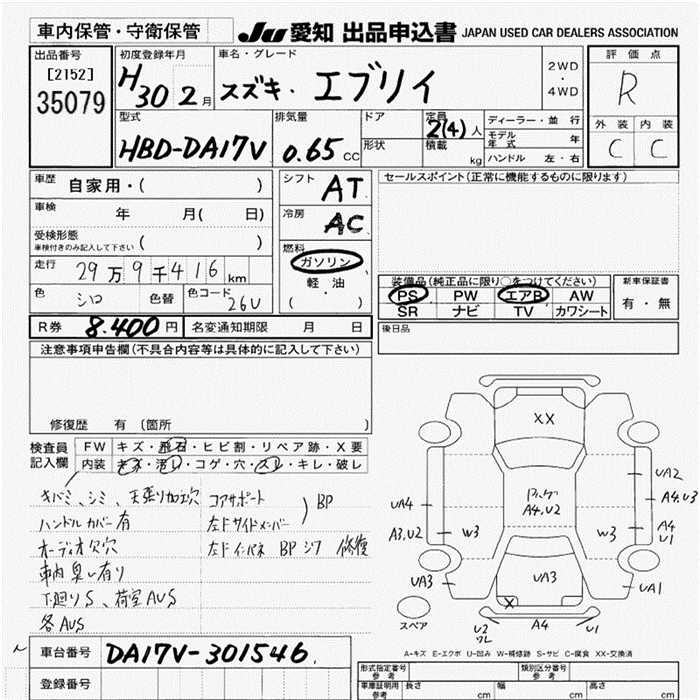 車内保管・守衛保管 JU 愛知 出品申込書 JAPAN USED CAR DEALERS ASSOCIATION
出品番号 初度登録年月 車名・グレード 2WD・4WD 評価点
[2152]
35079 H30 2月 スズキ・エブリイ R
型式 排気量 ドア 定員 2(4)人 ディーラー・並行 外装 内装
HBD-DA17V 0.65 CC 形状 積載 kg モデル年式 年 C C
ハンドル 左・右
車歴 自家用・( ) シフト AT セールスポイント(正常に機能するものに限ります)
車検 年 月( 日) 冷房 AC
受検形態
車検付きのみ記入して下さい ( ) 燃料
走行 29万9千416km ガソリン
軽油
( ・ )
色 シロ 色替 色コード 26U
装備品(純正品に限り○をつけてください) 新車保証書
PS PW エアB AW 有・無
SR ナビ TV カワシート
R券 8.400円 名変通知期限 月 日 後日品
注意事項申告欄(不具合内容等は具体的に記入して下さい)
修復歴 有 (箇所 )
検査員記入欄 FW キズ・飛石・ヒビ割・リペア跡・X要
内装 キズ・汚レ・コゲ・穴・スレ・キレ・破レ
キバミ、シミ、天張り加工穴 コアサポート
ハンドルカバー有 左Fサイドメンバー BP
オーディオ欠穴 左Fインパネ BP ジワ 修復
車内臭い有り
下廻りS、荷室AUS
各AUS
XX
A4.U2
UA4
A3.U2
W3
W3
UA2
A4.U3
A4
U1
UA3
UA3
UA1
X
スペア
U2
ワレ
A4
U1
A-キズ E-エクボ U-凹み W-補修跡 S-サビ C-腐食 XX-交換済
車台番号 DA17V-301546
登録番号
形式指定番号 参考 類別区分番号 参考
車庫証明用 参考 長さ cm 幅 cm 高さ cm